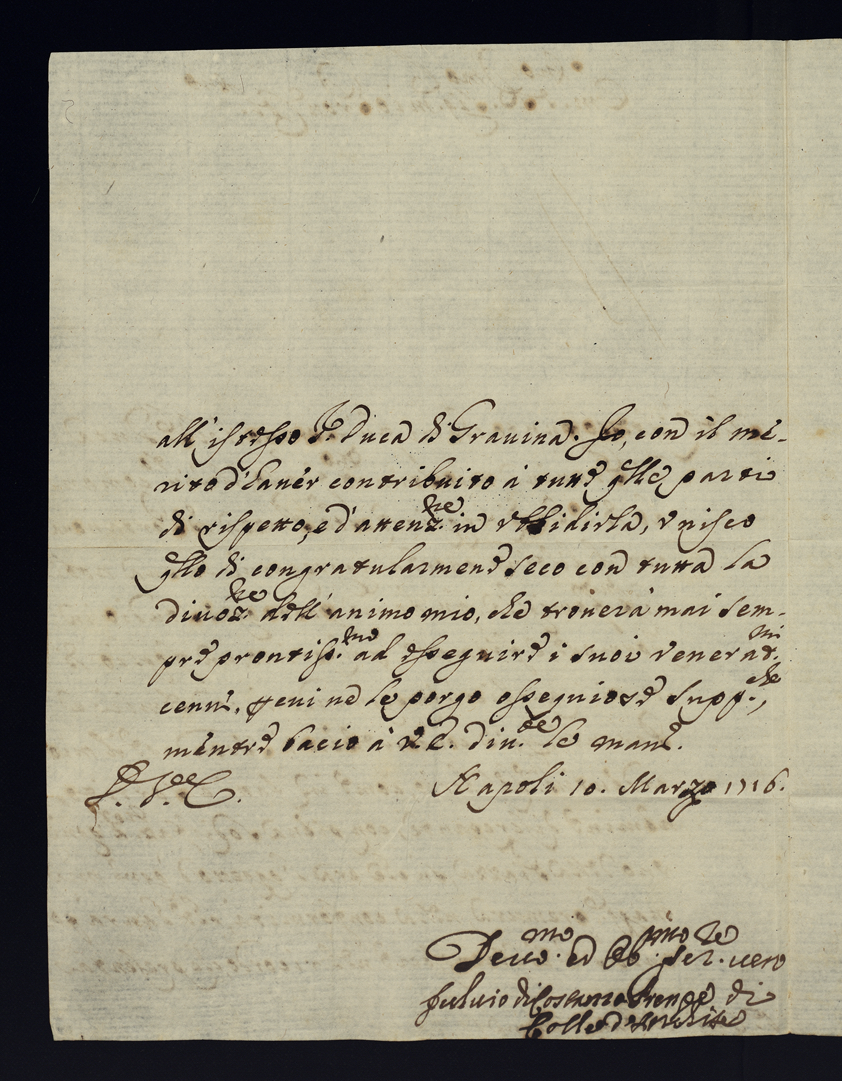 all'istesso S.r Duca di Gravina. Io, con il me-
rito d'haver contribuito à tutte q.lle parti
di rispetto, ed'atten.ne in ubbidirla, unisco
q.llo di congratularmene seco con tutta la
divoz.ne dell'animo mio, che troverà mai sem-
pre prontiss.mo ad esseguire i suoi venerat.mi
cenni, che ne le porgo ossequiose supp.che,
mentre bacio à V.E. div.te le mani.
Napoli 10. Marzo 1716.
Dev.mo ed Ob.mo Ser.re vero
Fulvio di Costanzo Prencipe di
Colle d'Anchise